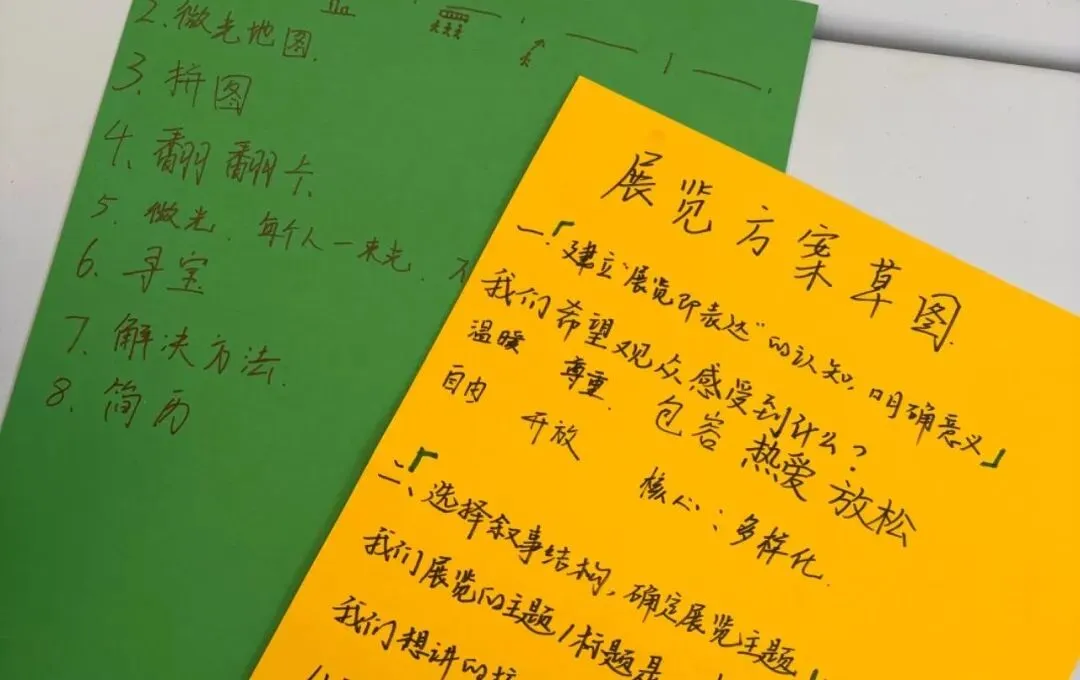 2.微光地图.
3、拼图
4、翻翻卡、
5、微光.每个人一束光.不
6、寻宝
7、解决方法.
8、简历
展览方案草图
一、「建立"展览即表达"的认知,明确意义」
我们希望观众感受到什么?
温暖 尊重. 包容 热爱 放松
自由 开放
核心:多样化.
二、「选择叙事结构,确定展览主题」
我们展览的主题/标题是
我们想讲的